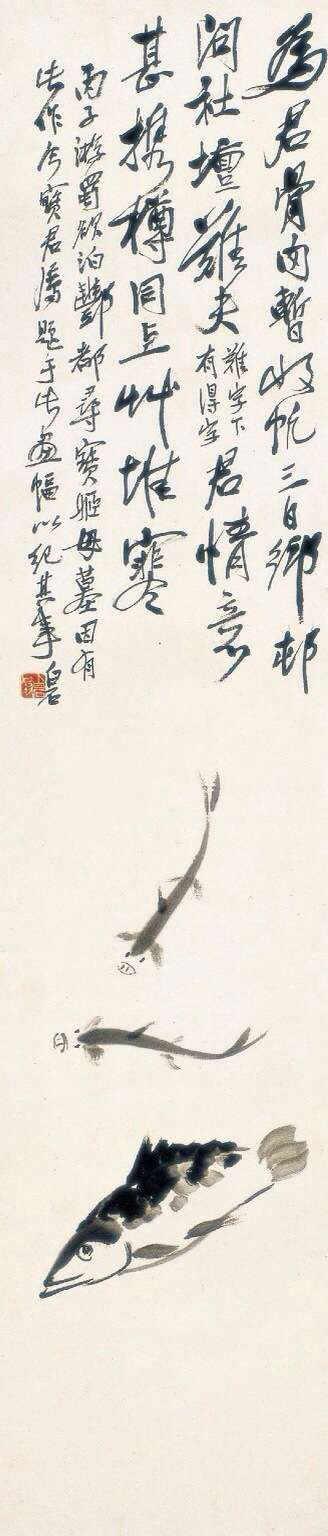 為君骨肉暫收帆三日鄉邨
問社壇難夫難字下有得字君情意
甚携樽同上艸堆寒
丙子游蜀欲泊酆都尋寶姬母墓因有
此作今寶君屬題于此畫幅以紀其事 白石